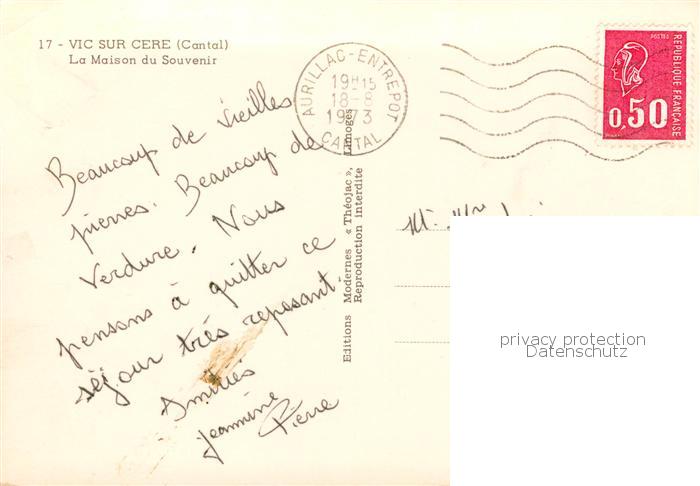 17 - VIC SUR CERE (Cantal)
La Maison du Souvenir
Beaucoup de vieilles
pierres. Beaucoup de
verdure. Nous
pensons à quitter ce
séjour très reposant.
Amitiés
Jeannine
Pierre
AURILLAC-ENTREPOT
19H15
18-8
1973
CANTAL
Editions Modernes « Théojac », Limoges
Reproduction interdite
POSTES
REPUBLIQUE FRANÇAISE
0,50
Mr. Mme
privacy protection
Datenschutz